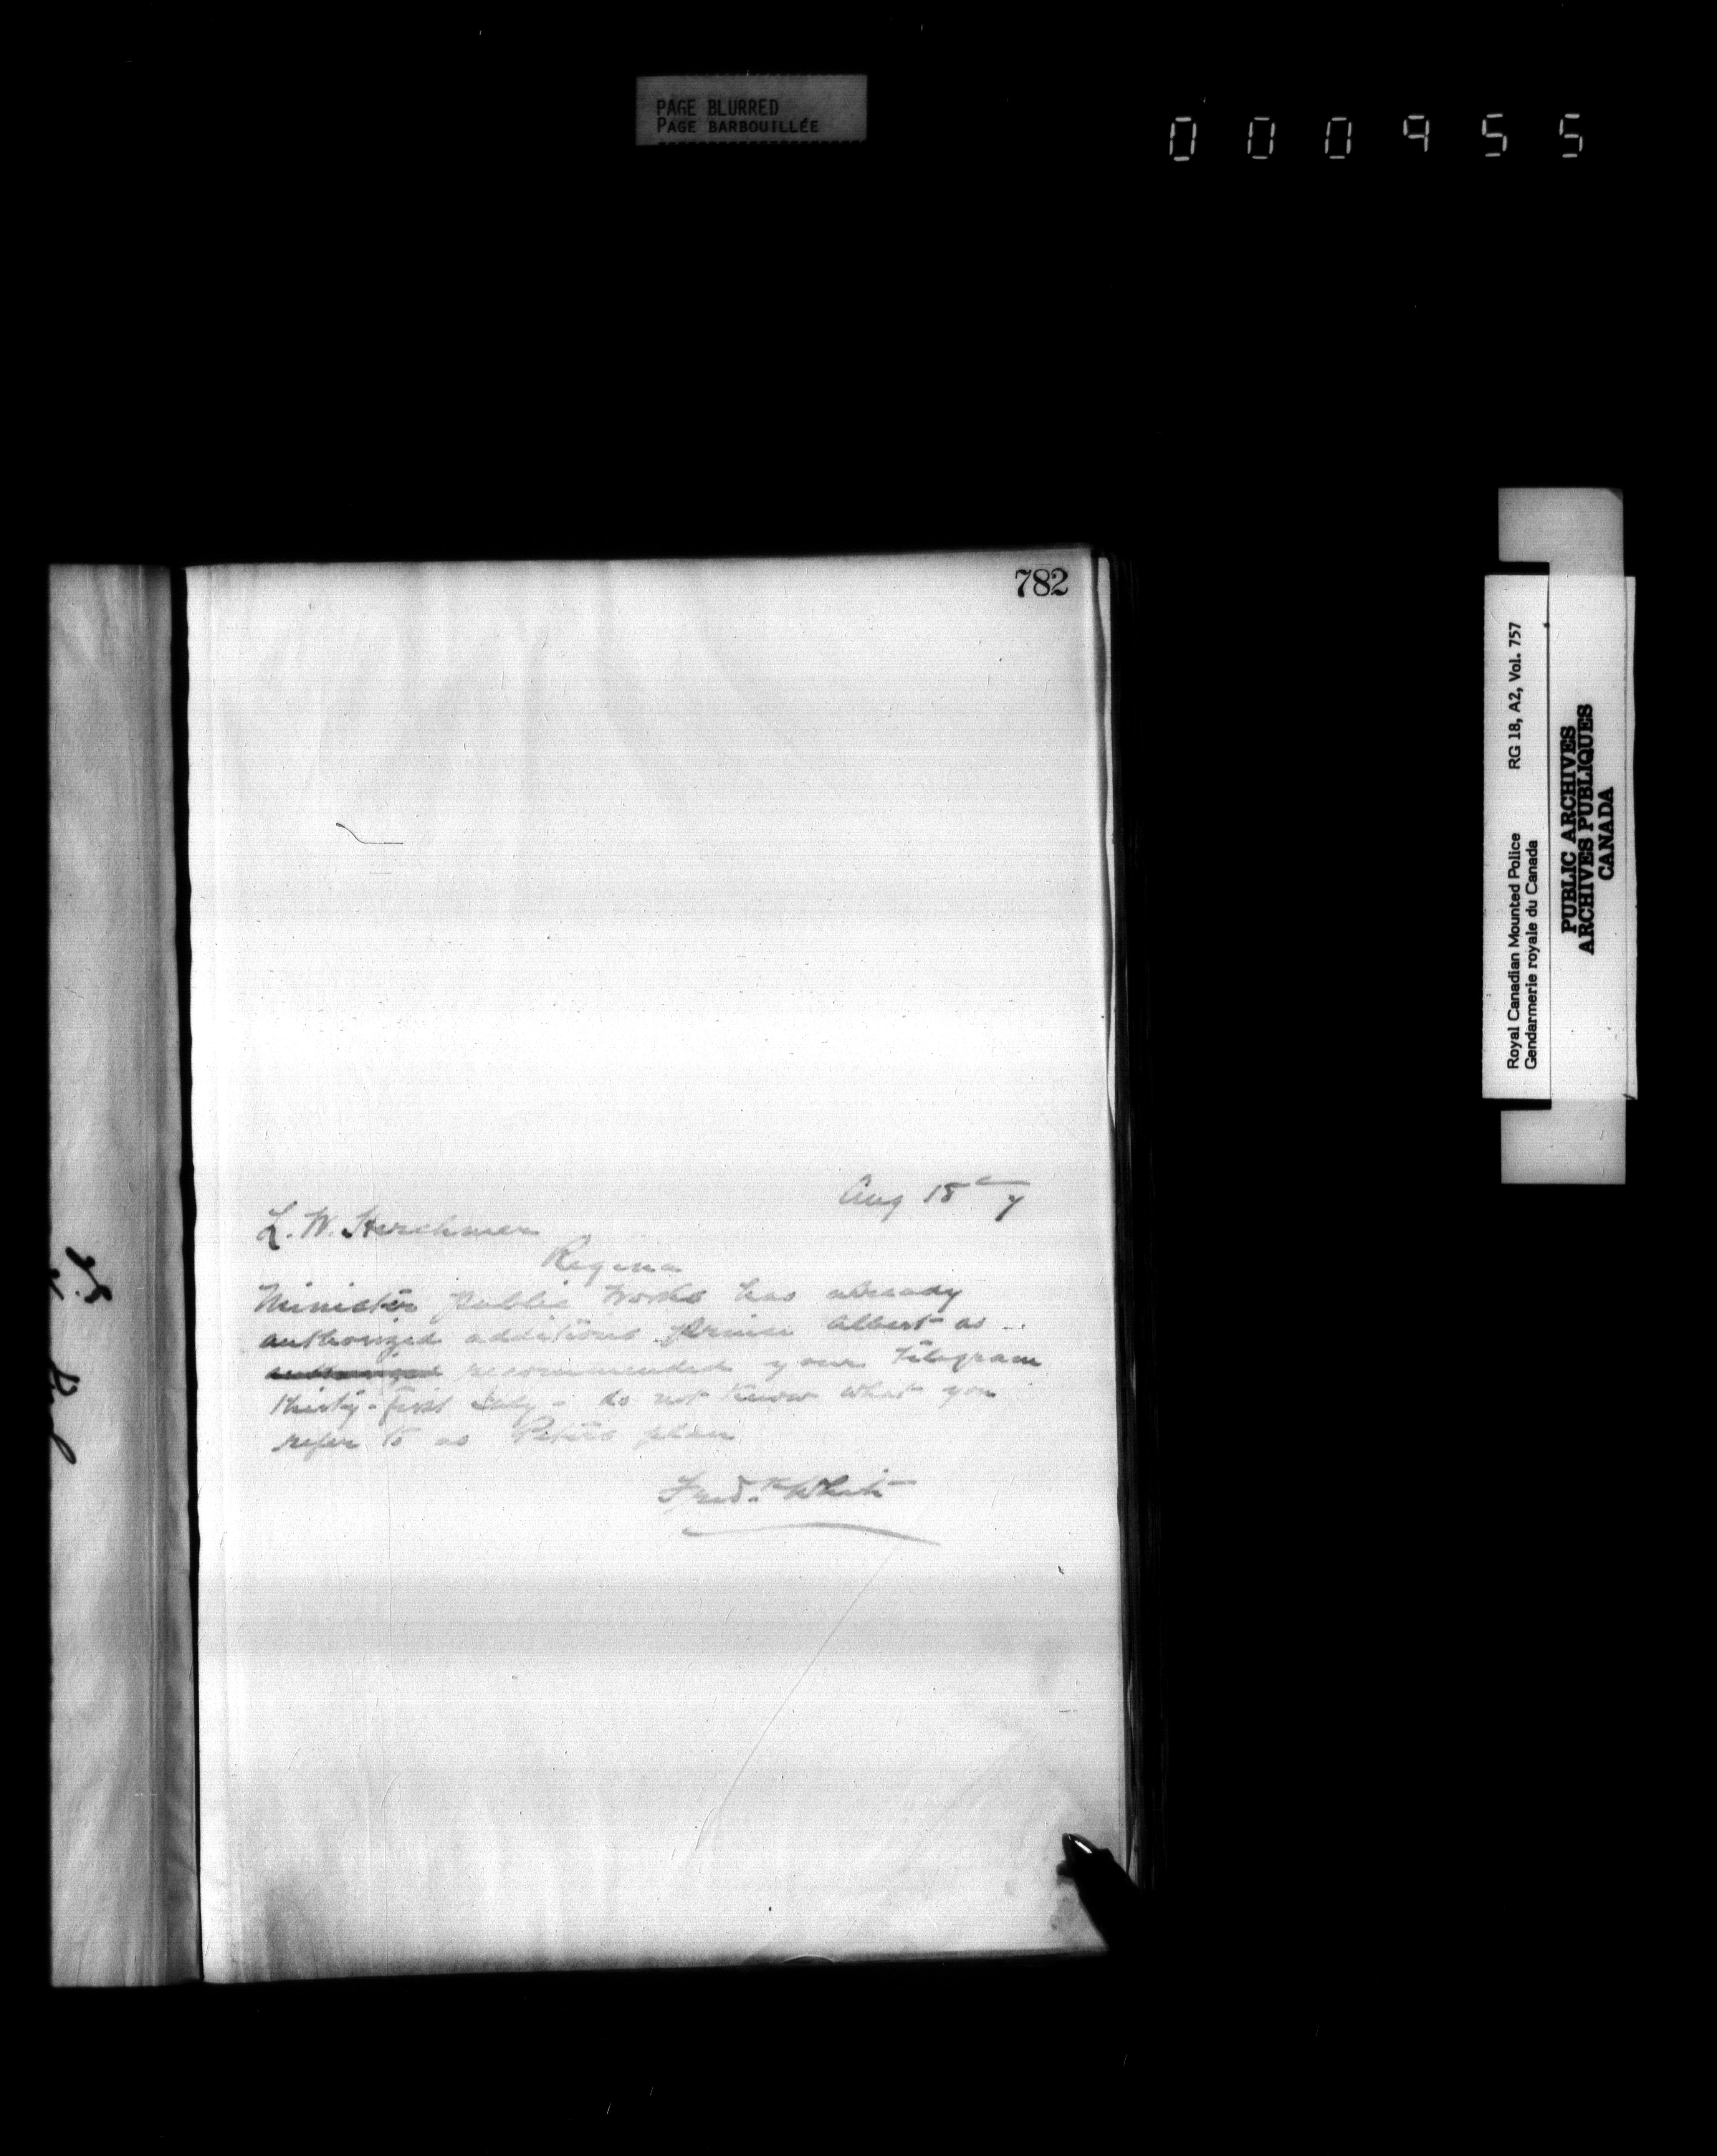 PAGE BLURRED
PAGE BARBOUILLÉE
000955
782
Aug 18th 7
L. W. Herchmer
Regina
Minister Public Works has already
authorized additions Prince Albert as
authorized recommended your telegram
thirty-first July - do not know what you
refer to as Peters plan
Fred. White
Royal Canadian Mounted Police RG 18, A2, Vol. 757
Gendarmerie royale du Canada
PUBLIC ARCHIVES
ARCHIVES PUBLIQUES
CANADA